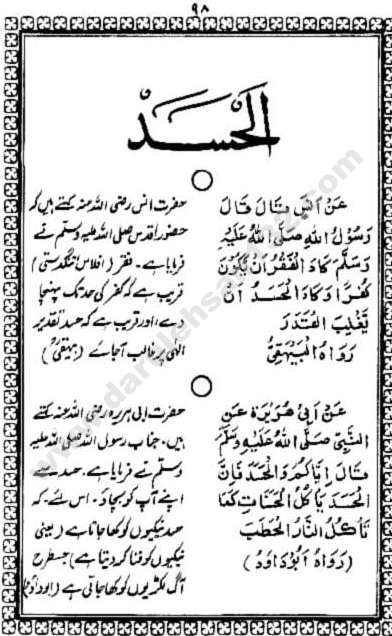 ٩٨
الحَسَد
عَنْ اَنَسٍ قَالَ قَالَ
رَسُوْلُ اللهِ صَلَّى اللهُ عَلَيْهِ
وَسَلَّمَ كَادَ الْفَقْرُ اَنْ يَّكُوْنَ
كُفْرًا وَكَادَ الْحَسَدُ اَنْ
يَّغْلِبَ الْقَدَرَ
رَوَاهُ الْبَيْهَقِيُّ
حضرت انس رضی اللہ عنہ کہتے ہیں کہ
حضور اقدس صلی اللہ علیہ وسلم نے
فرمایا ہے۔ فقر (افلاس تنگدستی)
قریب ہے کہ کفر کی حد تک پہنچا
دے، اور قریب ہے کہ حسد تقدیر
الٰہی پر غالب آجائے (بیہقیؒ)
عَنْ اَبِيْ هُرَيْرَةَ عَنِ
النَّبِيِّ صَلَّى اللهُ عَلَيْهِ وَسَلَّمَ
قَالَ اِيَّاكُمْ وَالْحَسَدَ فَاِنَّ
الْحَسَدَ يَأْكُلُ الْحَسَنَاتِ كَمَا
تَأْكُلُ النَّارُ الْحَطَبَ
(رَوَاهُ اَبُوْدَاوُدَ)
حضرت ابی ہریرہ رضی اللہ عنہ کہتے
ہیں۔ جناب رسول اللہ صلی اللہ علیہ
وسلم نے فرمایا ہے۔ حسد سے
اپنے آپ کو بچاؤ۔ اس لئے۔ کہ
حسد نیکیوں کو کھا جاتا ہے (یعنی
نیکیوں کو فنا کر دیتا ہے) جس طرح
آگ لکڑیوں کو کھا جاتی ہے (ابوداؤد)